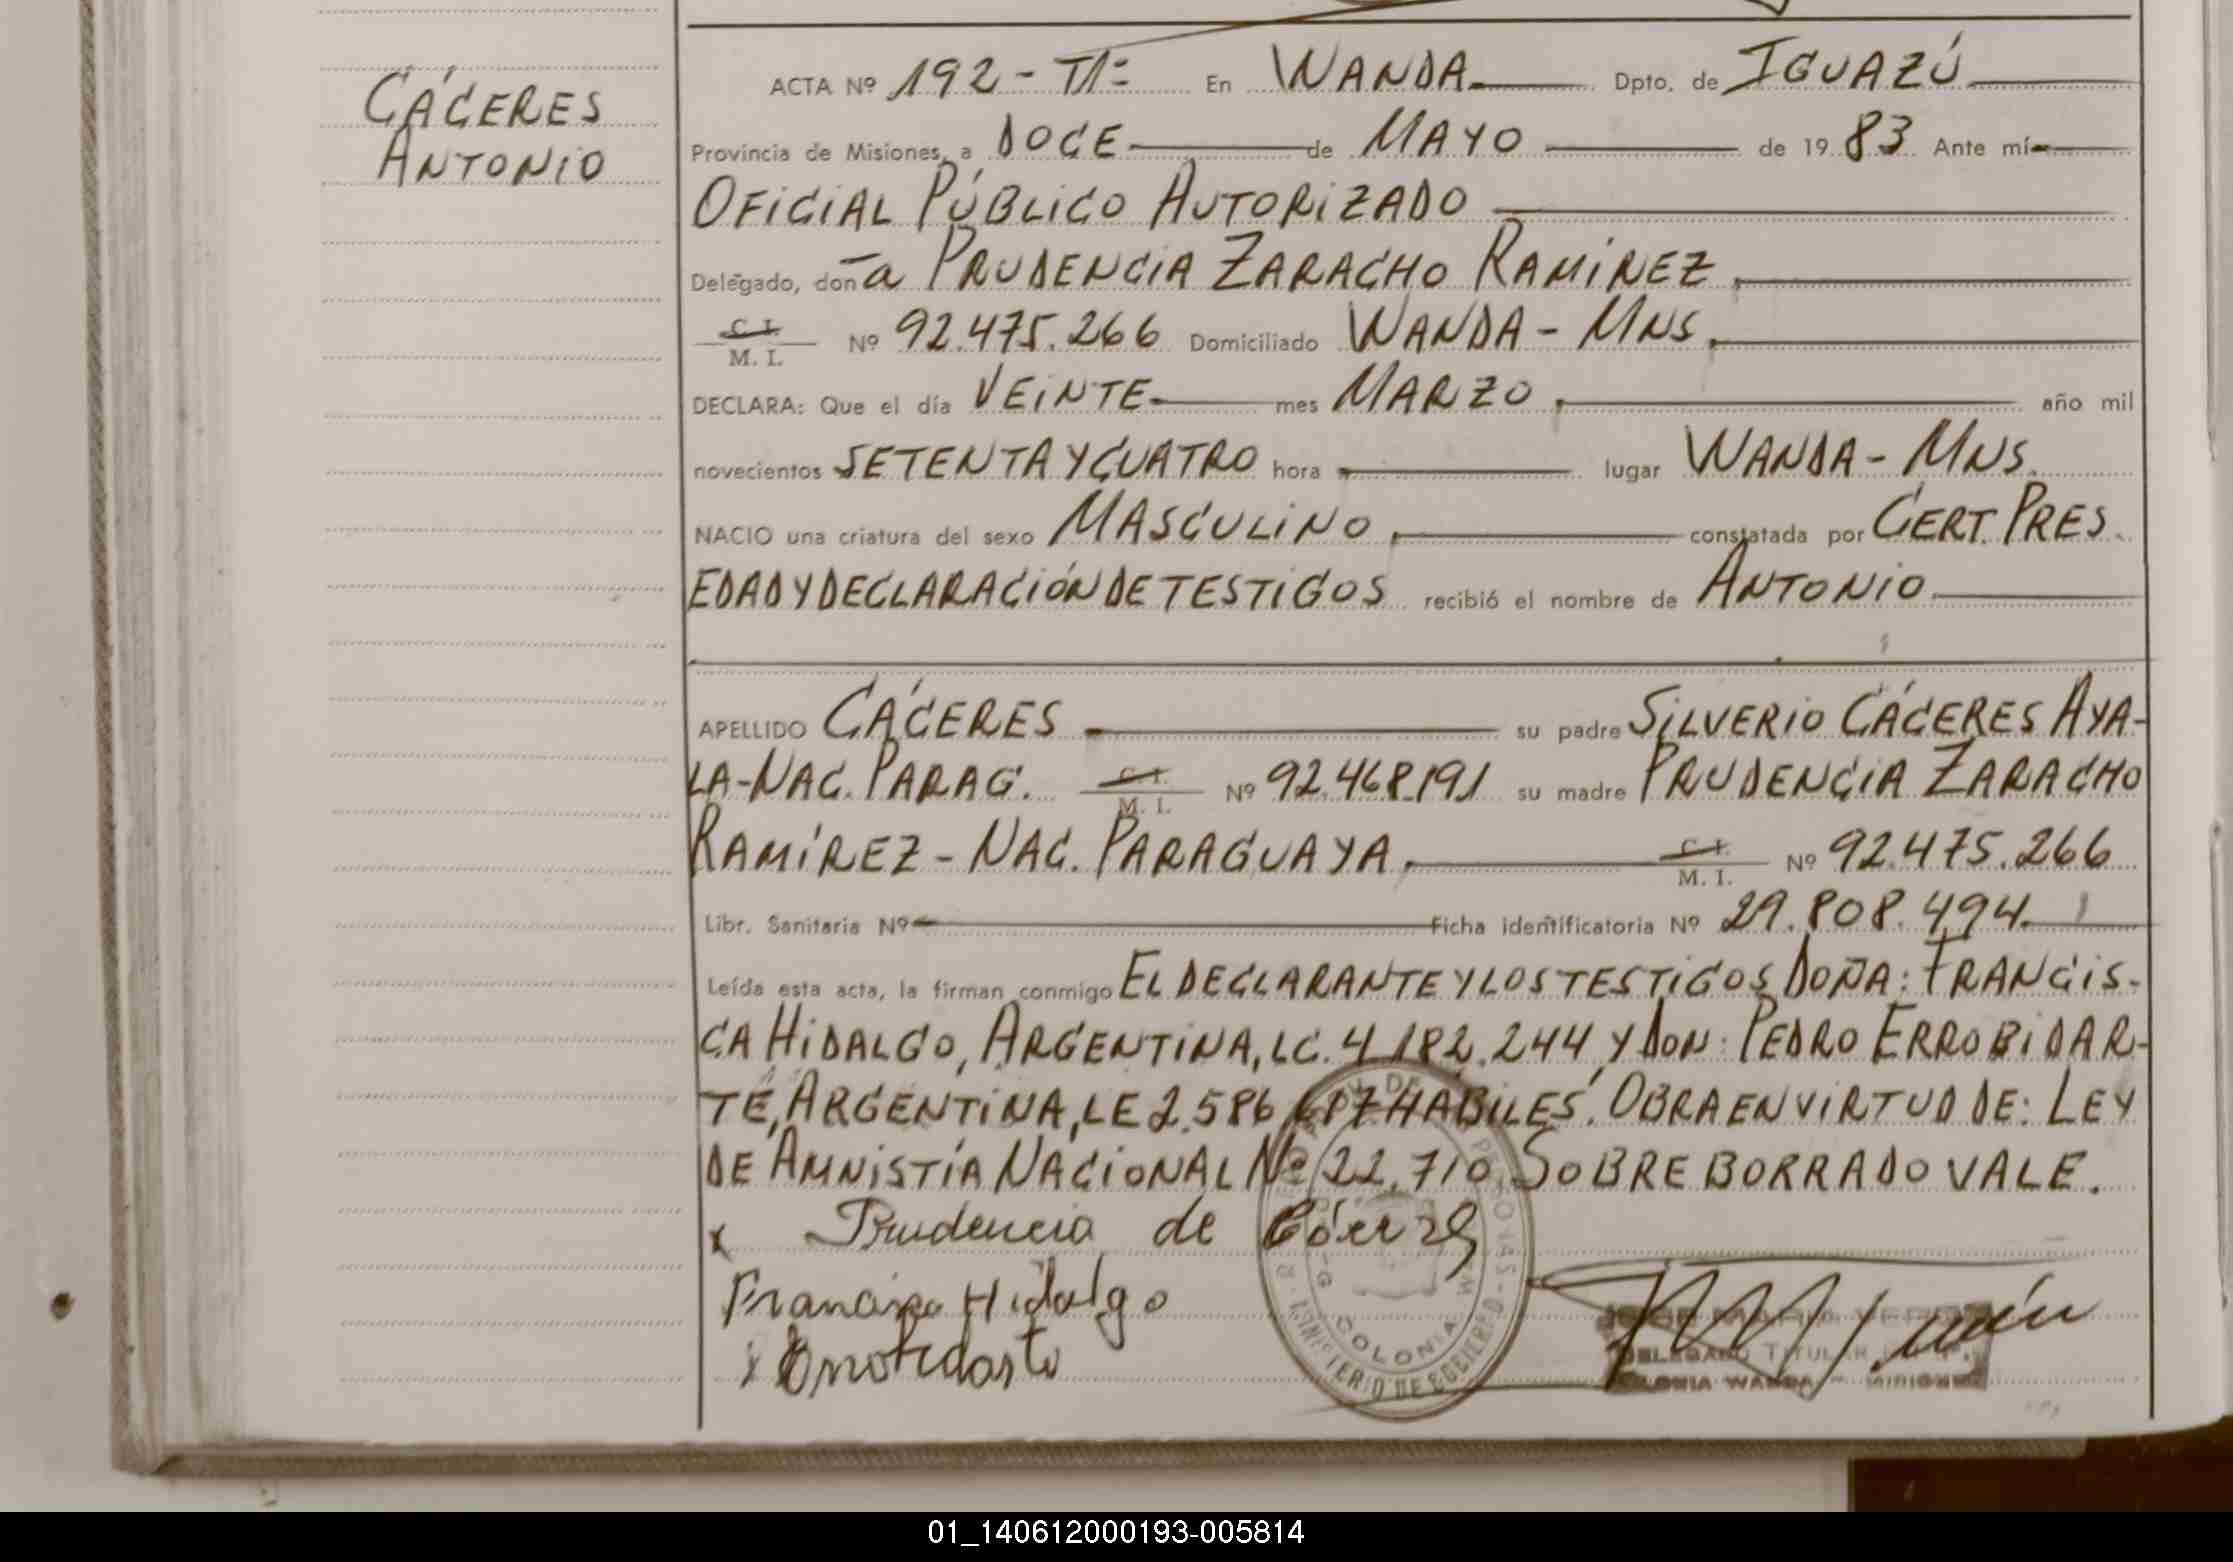 CÁCERES
ANTONIO
ACTA Nº 192 - Tº1º En WANDA Dpto. de IGUAZÚ
Provincia de Misiones, a DOCE de MAYO de 1983 Ante mí
OFICIAL PÚBLICO AUTORIZADO
Delegado, doña PRUDENCIA ZARACHO RAMÍREZ
C. I.
M. I. Nº 92.475.266 Domiciliado WANDA - MNS.
DECLARA: Que el día VEINTE mes MARZO año mil
novecientos SETENTA Y CUATRO hora lugar WANDA - MNS.
NACIO una criatura del sexo MASCULINO, constatada por CERT. PRES.
EDAD Y DECLARACIÓN DE TESTIGOS recibió el nombre de ANTONIO
APELLIDO CÁCERES su padre SILVERIO CÁCERES AYA-
LA-NAC. PARAG. C. I. M. I. Nº 92.468.191 su madre PRUDENCIA ZARACHO
RAMÍREZ - NAC. PARAGUAYA. C. I. M. I. Nº 92.475.266
Libr. Sanitaria Nº Ficha identificatoria Nº 29.808.494
Leída esta acta, la firman conmigo EL DECLARANTE Y LOS TESTIGOS DOÑA: FRANCIS-
CA HIDALGO, ARGENTINA, LC. 4.182.244 Y DON: PEDRO ERROBIDAR-
TE, ARGENTINA, LE 2.586 HABILES. OBRA EN VIRTUD DE: LEY
DE AMNISTÍA NACIONAL Nº 22.710. SOBRE BORRADO VALE.
x Prudencia de
Francisca Hidalgo
COLONIA
MINISTERIO DE GOBIERNO
DELEGADO TITULAR
COLONIA WANDA - MISIONES
01_140612000193-005814